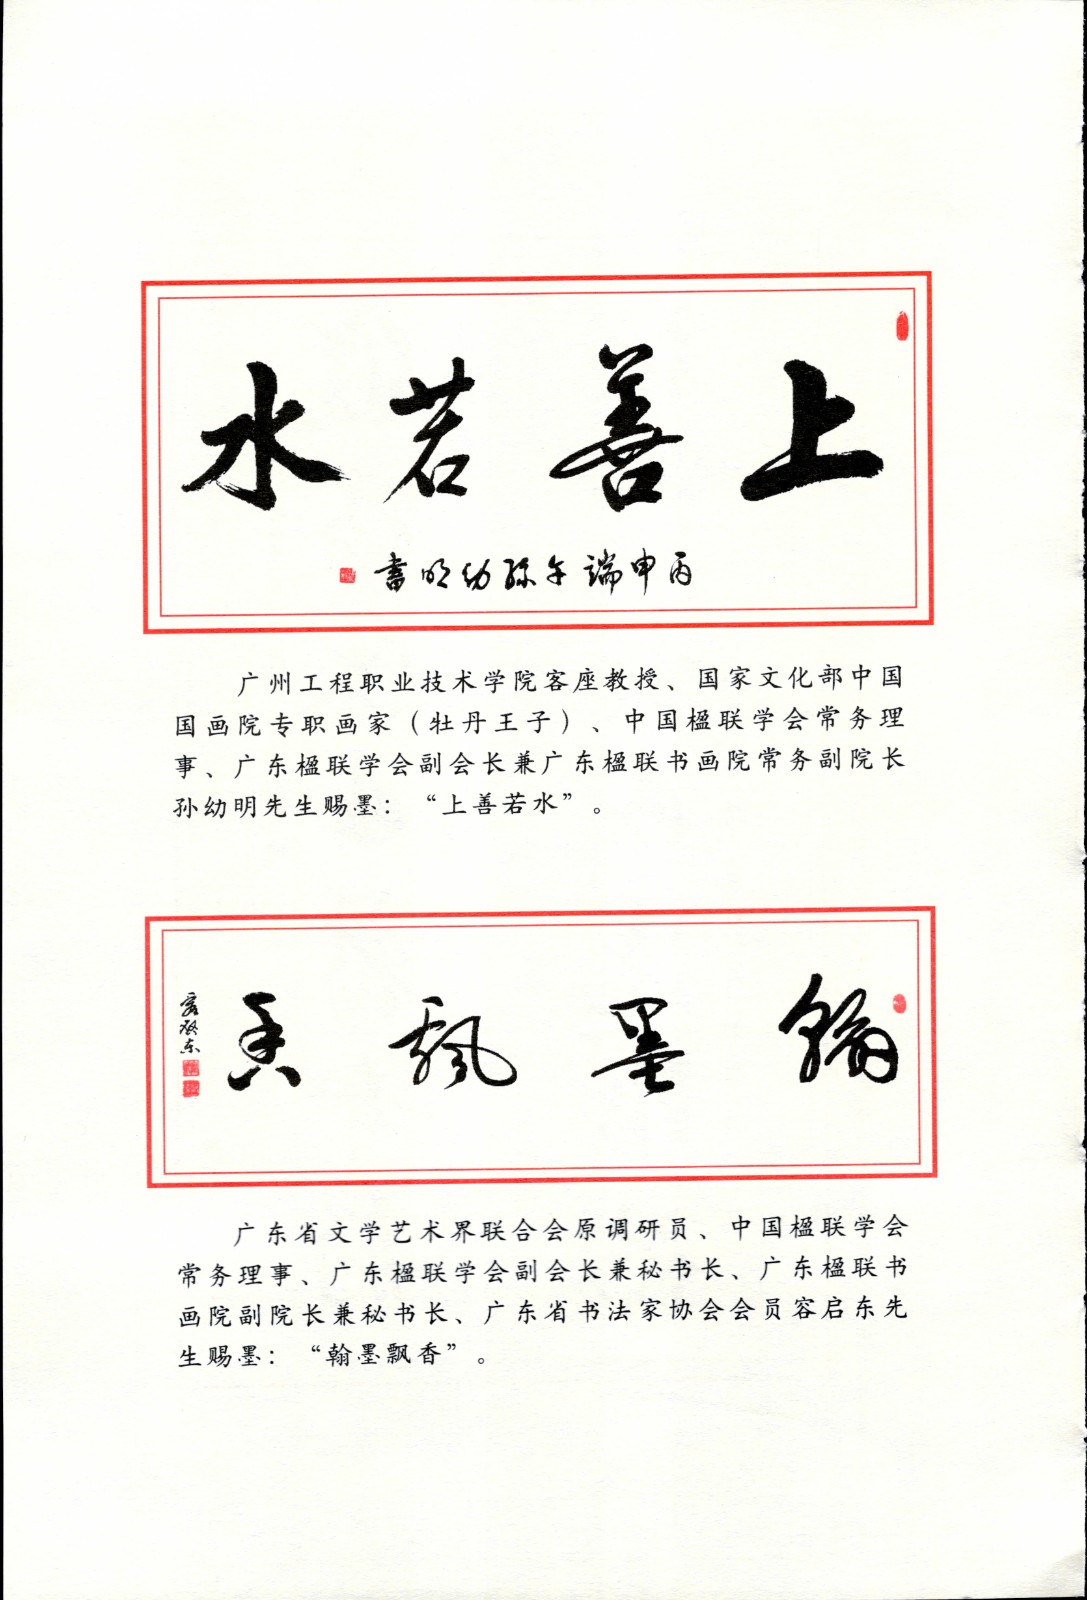 上善若水
丙申端午孙幼明書
广州工程职业技术学院客座教授、国家文化部中国
国画院专职画家（牡丹王子）、中国楹联学会常务理
事、广东楹联学会副会长兼广东楹联书画院常务副院长
孙幼明先生赐墨：“上善若水”。
翰墨飘香
容啟东
广东省文学艺术界联合会原调研员、中国楹联学会
常务理事、广东楹联学会副会长兼秘书长、广东楹联书
画院副院长兼秘书长、广东省书法家协会会员容启东先
生赐墨：“翰墨飘香”。